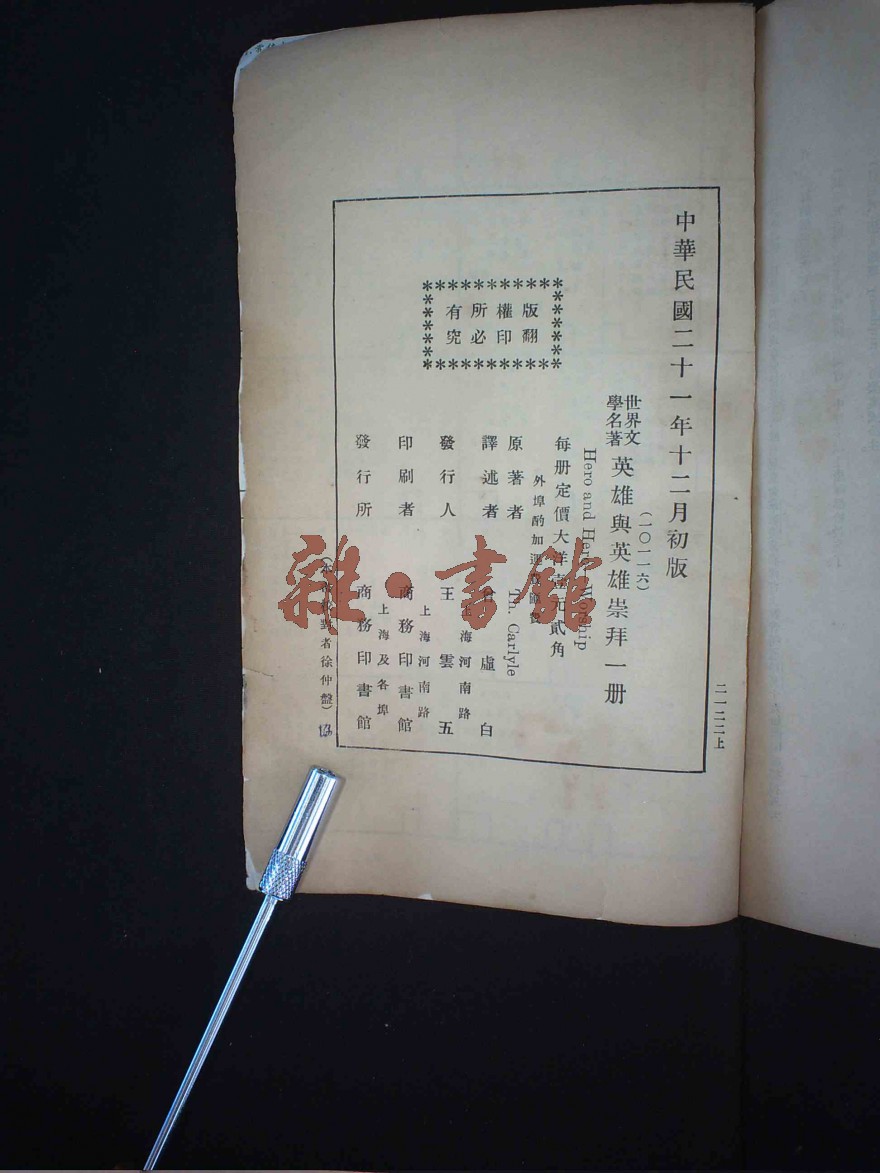 二一二二上
中華民國二十一年十二月初版
(一〇一一六)
世界文
學名著
英雄與英雄崇拜一册
Hero and Worship
每册定價大洋壹元貳角
外埠酌加運費匯費
版權所有
翻印必究
原著者 Th. Carlyle
譯述者 虛白
上海河南路
發行人 王雲五
上海河南路
印刷者 商務印書館
上海及各埠
發行所 商務印書館
對者徐仲盤)
雜·書館